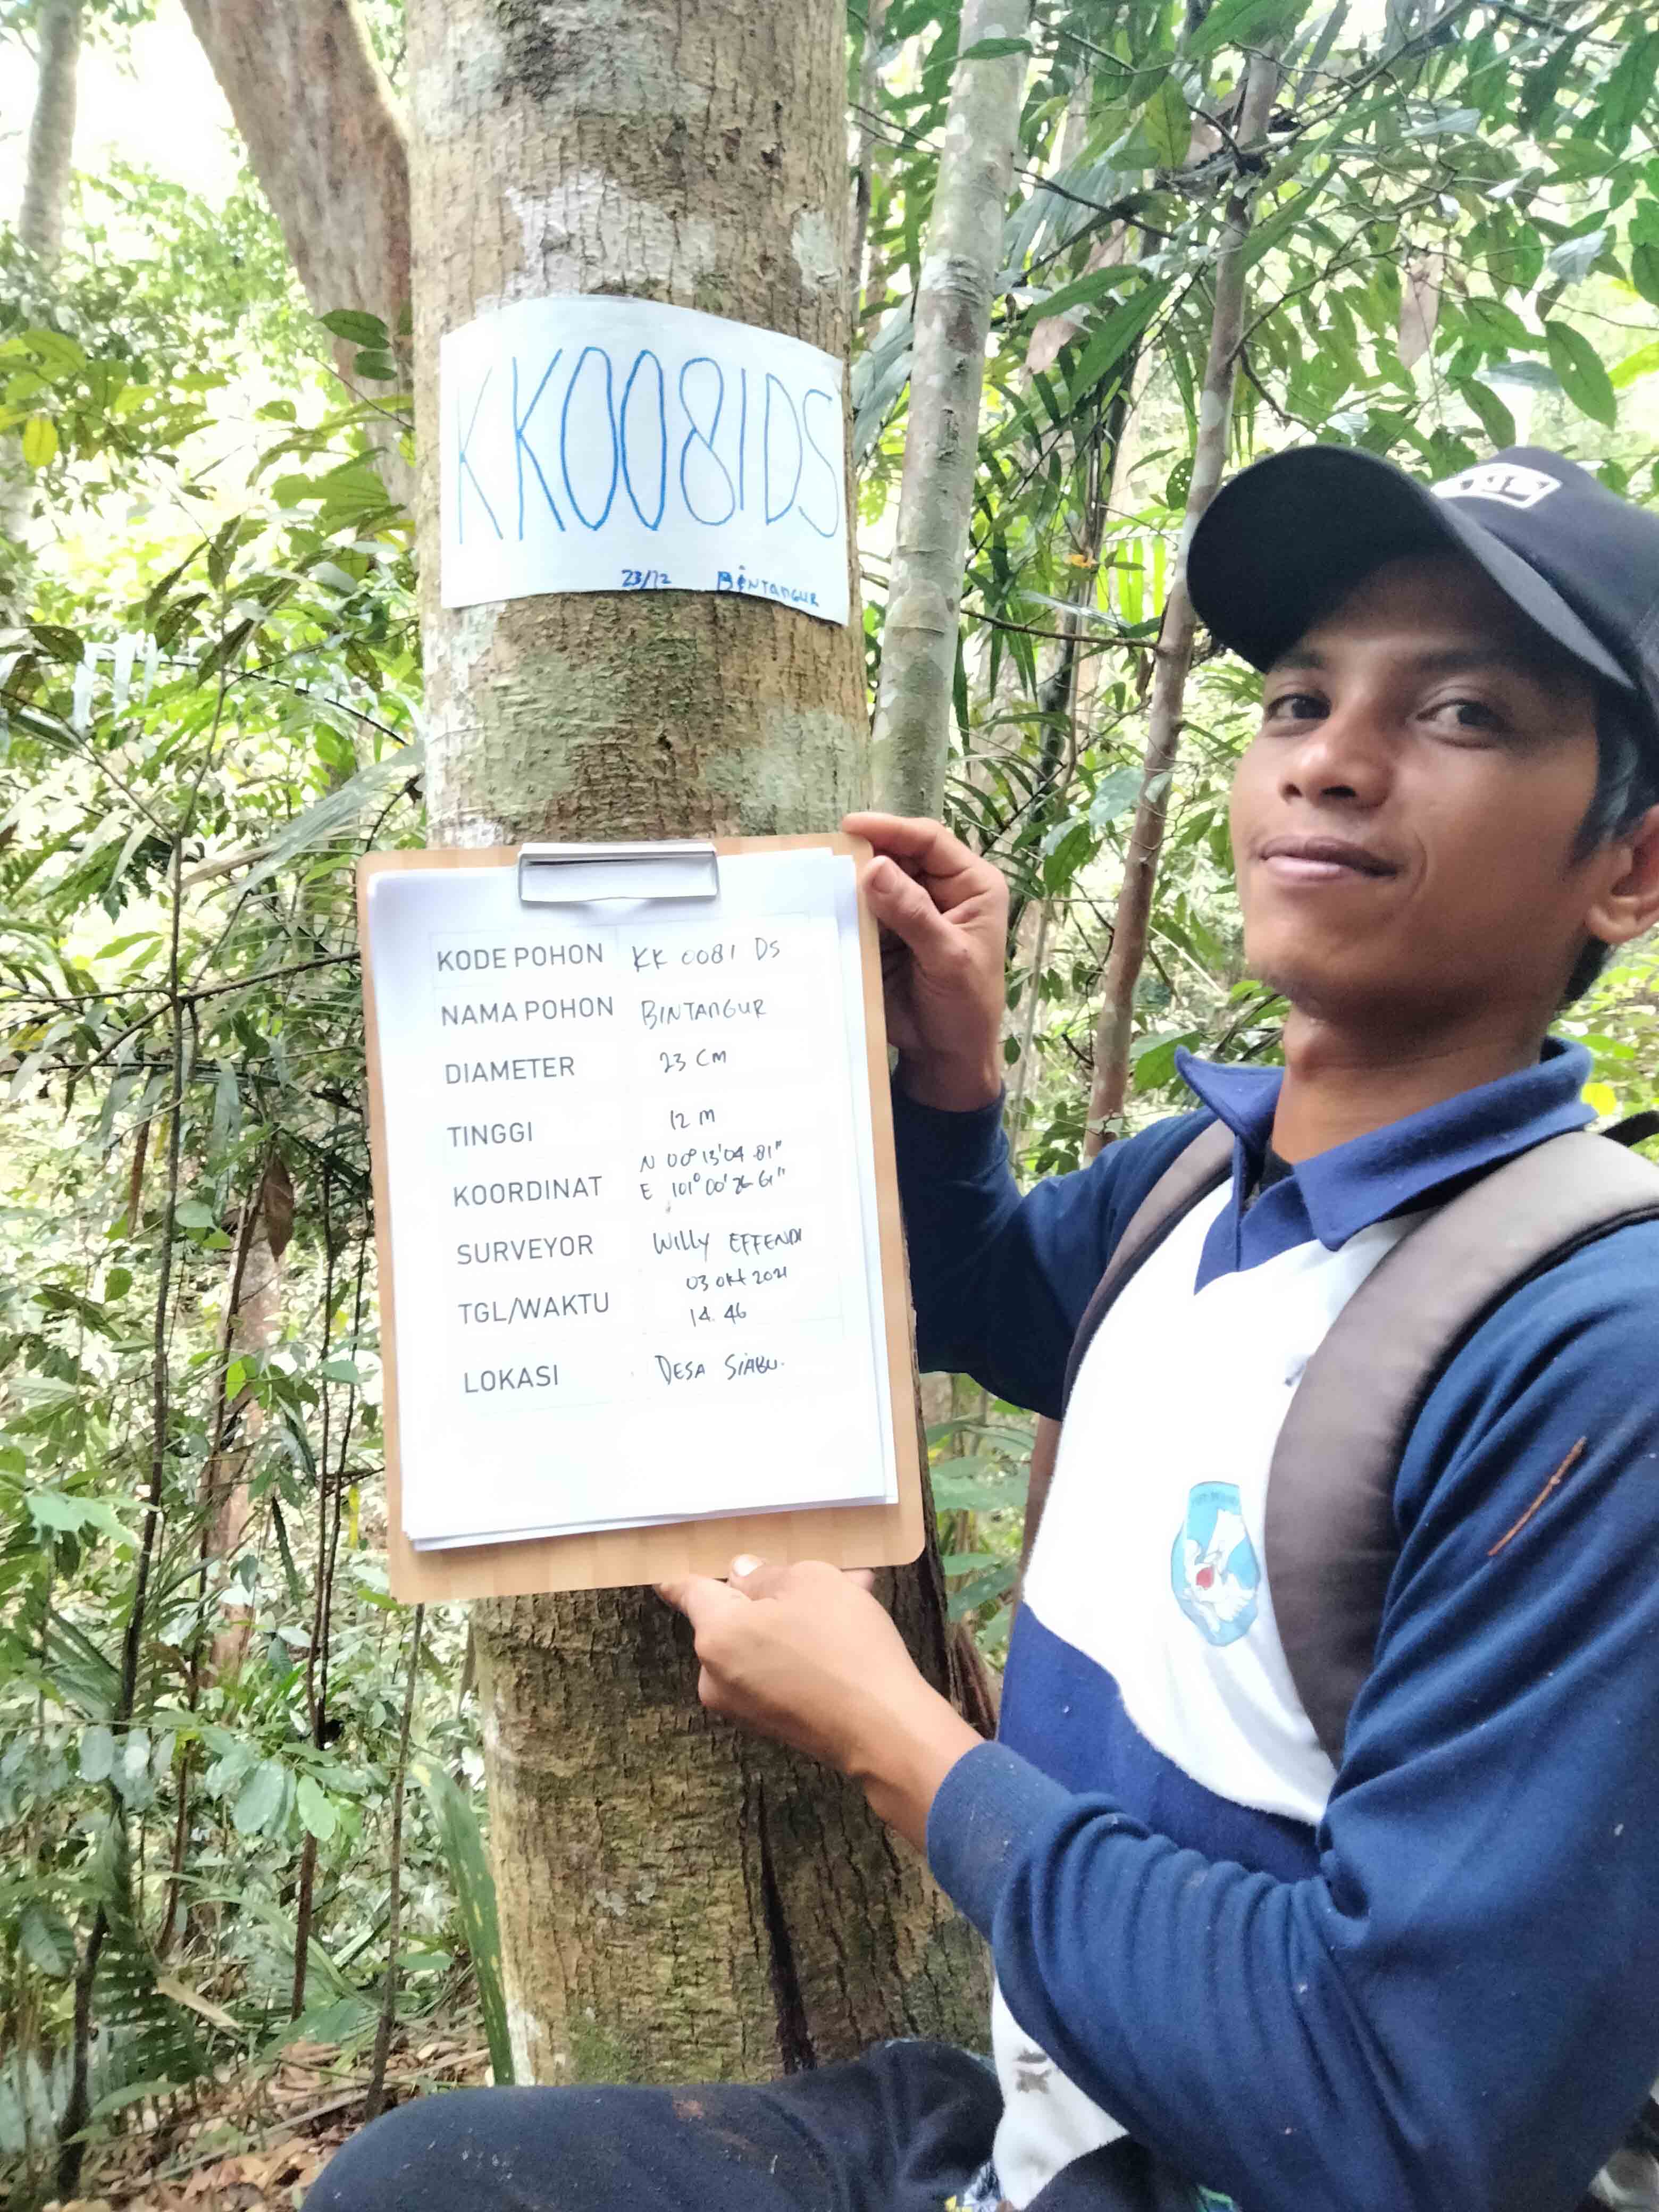 KK0081DS
23/12 BiNTANGUR
KODE POHON KK 0081 DS
NAMA POHON BINTANGUR
DIAMETER 23 CM
TINGGI 12 M
KOORDINAT N 00° 13' 04.81"
E 101° 00' 26.61"
SURVEYOR WILLY EFFENDI
TGL/WAKTU 03 Okt 2021
14.46
LOKASI DESA SIABU.